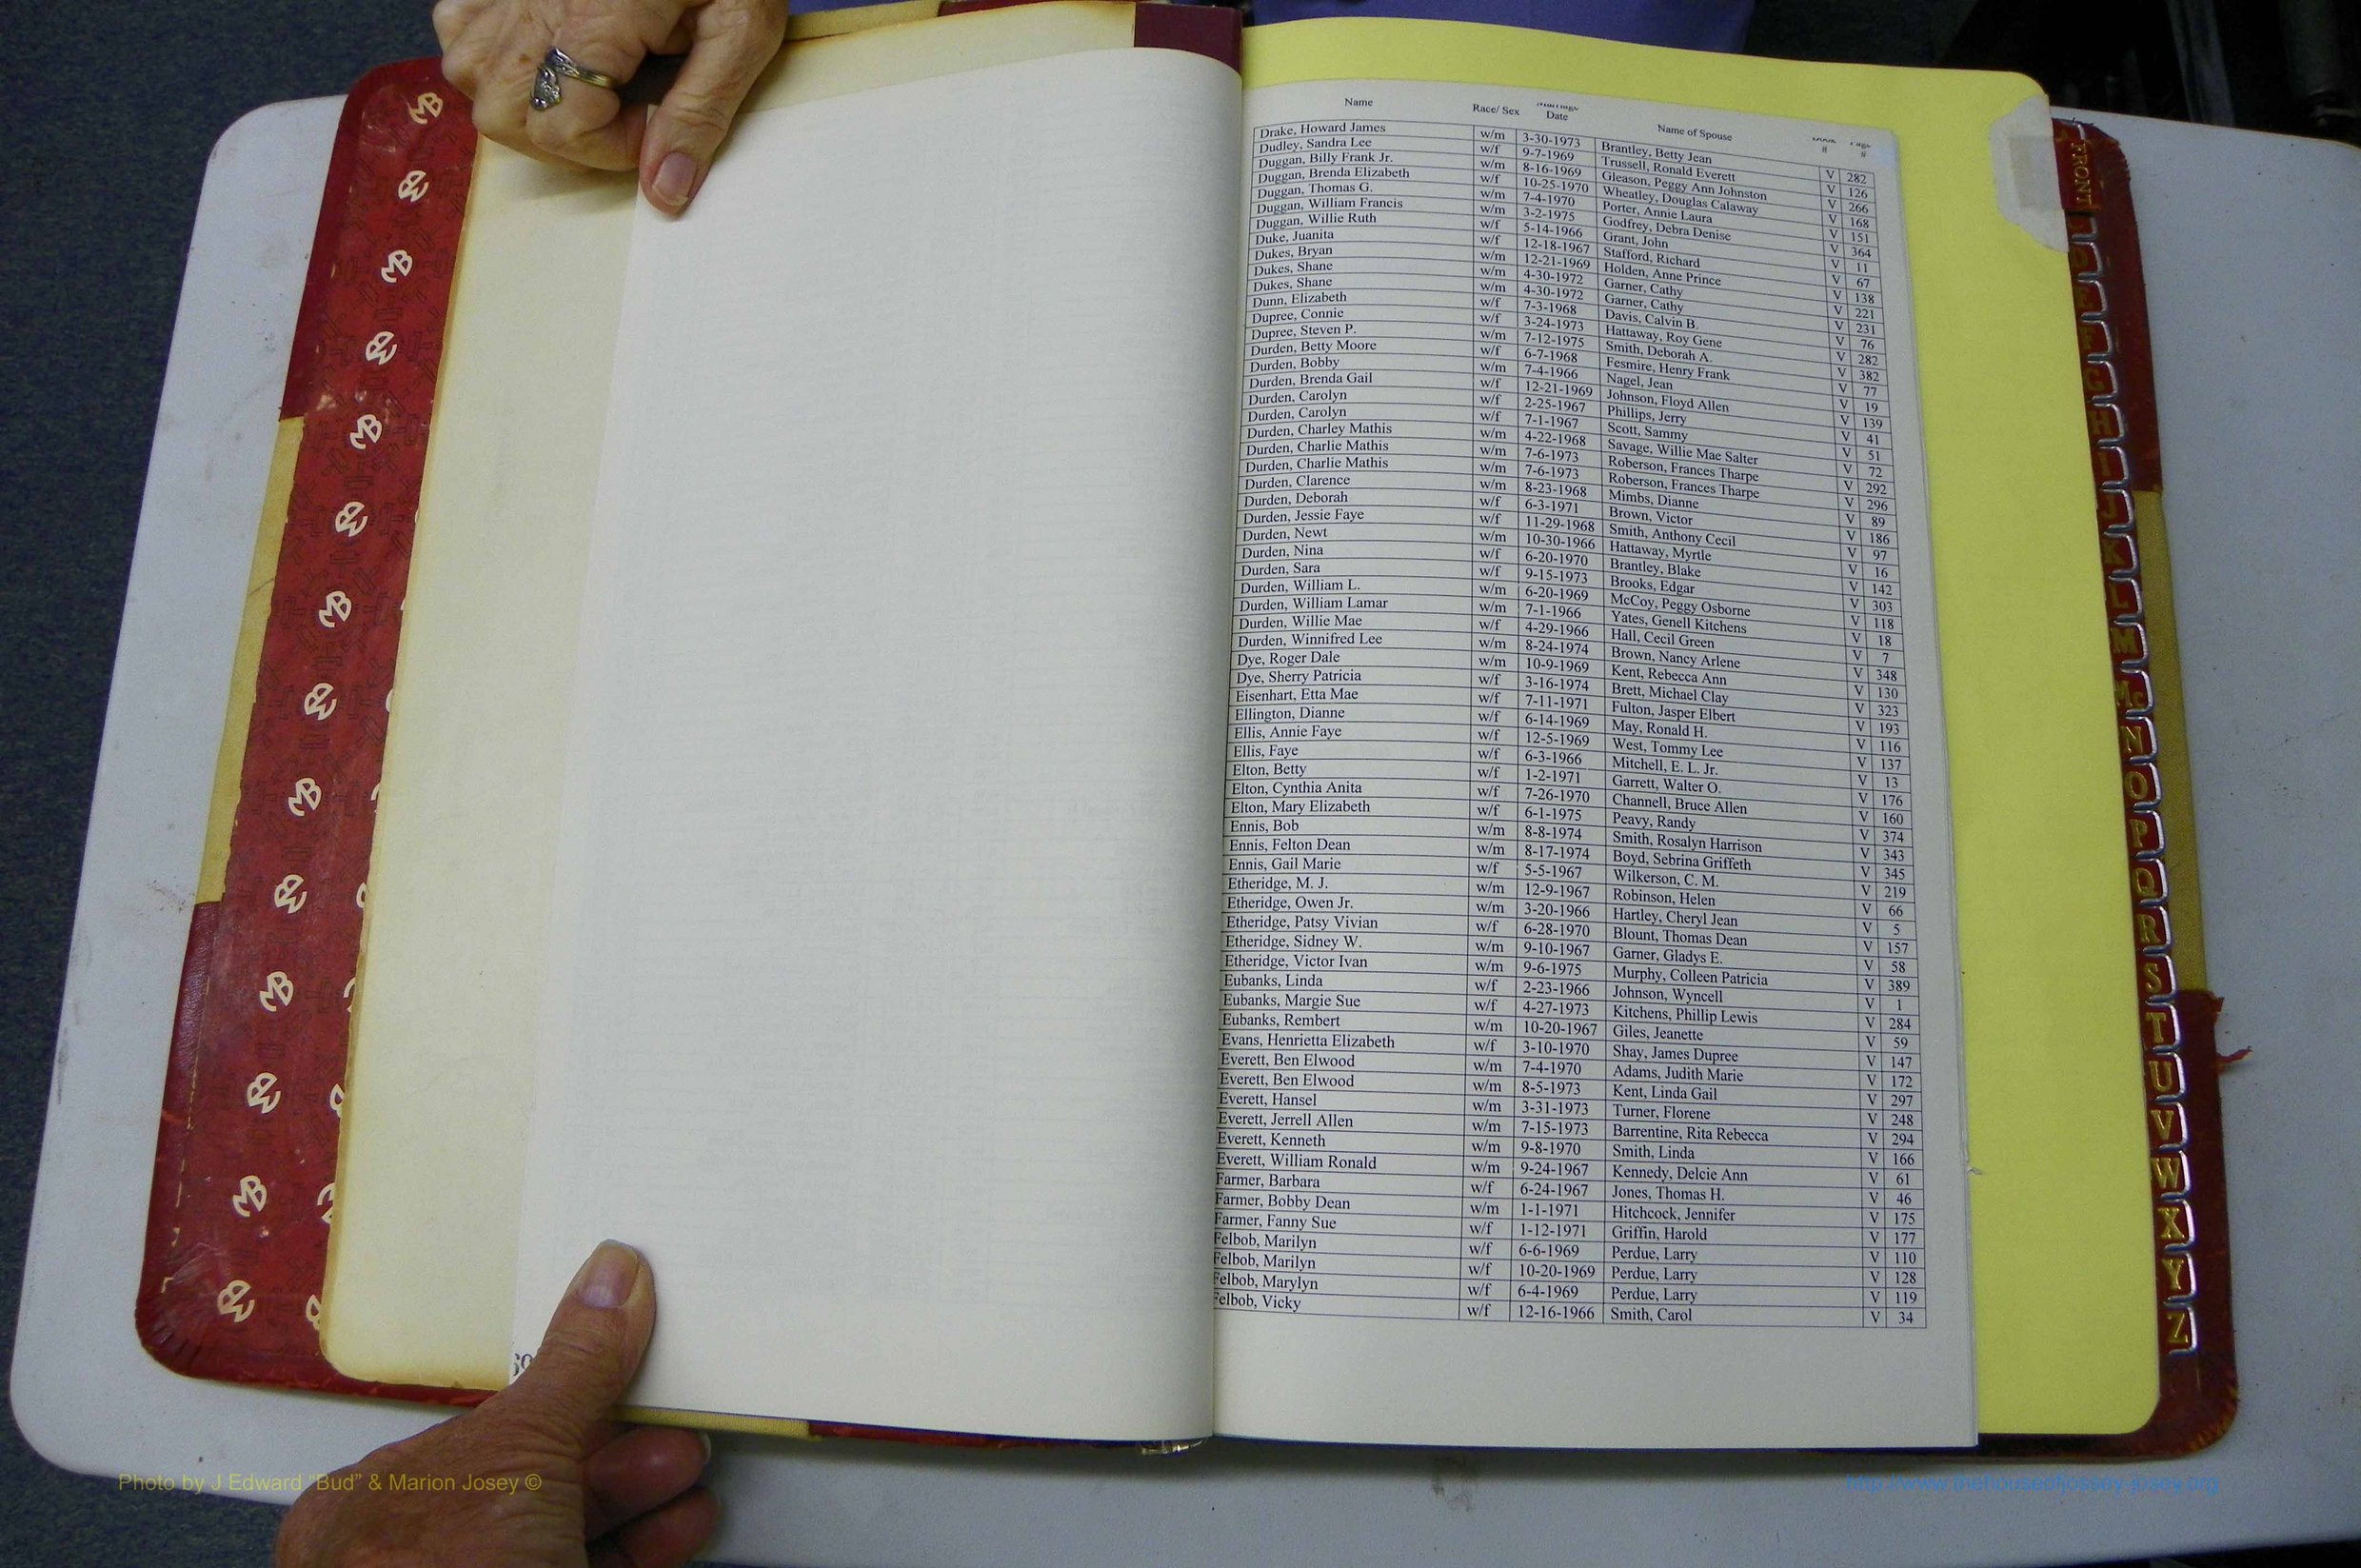 Name Race/ Sex Marriage Date Name of Spouse Book # Page #
Drake, Howard James w/m 3-30-1973 Brantley, Betty Jean V 282
Dudley, Sandra Lee w/f 9-7-1969 Trussell, Ronald Everett V 126
Duggan, Billy Frank Jr. w/m 8-16-1969 Gleason, Peggy Ann Johnston V 266
Duggan, Brenda Elizabeth w/f 10-25-1970 Wheatley, Douglas Calaway V 168
Duggan, Thomas G. w/m 7-4-1970 Porter, Annie Laura V 151
Duggan, William Francis w/m 3-2-1975 Godfrey, Debra Denise V 364
Duggan, Willie Ruth w/f 5-14-1966 Grant, John V 11
Duke, Juanita w/f 12-18-1967 Stafford, Richard V 67
Dukes, Bryan w/m 12-21-1969 Holden, Anne Prince V 138
Dukes, Shane w/m 4-30-1972 Garner, Cathy V 221
Dukes, Shane w/m 4-30-1972 Garner, Cathy V 231
Dunn, Elizabeth w/f 7-3-1968 Davis, Calvin B. V 76
Dupree, Connie w/f 3-24-1973 Hattaway, Roy Gene V 282
Dupree, Steven P. w/m 7-12-1975 Smith, Deborah A. V 382
Durden, Betty Moore w/f 6-7-1968 Fesmire, Henry Frank V 77
Durden, Bobby w/m 7-4-1966 Nagel, Jean V 19
Durden, Brenda Gail w/f 12-21-1969 Johnson, Floyd Allen V 139
Durden, Carolyn w/f 2-25-1967 Phillips, Jerry V 41
Durden, Carolyn w/f 7-1-1967 Scott, Sammy V 51
Durden, Charley Mathis w/m 4-22-1968 Savage, Willie Mae Salter V 72
Durden, Charlie Mathis w/m 7-6-1973 Roberson, Frances Tharpe V 292
Durden, Charlie Mathis w/m 7-6-1973 Roberson, Frances Tharpe V 296
Durden, Clarence w/m 8-23-1968 Mimbs, Dianne V 89
Durden, Deborah w/f 6-3-1971 Brown, Victor V 186
Durden, Jessie Faye w/f 11-29-1968 Smith, Anthony Cecil V 97
Durden, Newt w/m 10-30-1966 Hattaway, Myrtle V 16
Durden, Nina w/f 6-20-1970 Brantley, Blake V 142
Durden, Sara w/f 9-15-1973 Brooks, Edgar V 303
Durden, William L. w/m 6-20-1969 McCoy, Peggy Osborne V 118
Durden, William Lamar w/m 7-1-1966 Yates, Genell Kitchens V 18
Durden, Willie Mae w/f 4-29-1966 Hall, Cecil Green V 7
Durden, Winnifred Lee w/m 8-24-1974 Brown, Nancy Arlene V 348
Dye, Roger Dale w/m 10-9-1969 Kent, Rebecca Ann V 130
Dye, Sherry Patricia w/f 3-16-1974 Brett, Michael Clay V 323
Eisenhart, Etta Mae w/f 7-11-1971 Fulton, Jasper Elbert V 193
Ellington, Dianne w/f 6-14-1969 May, Ronald H. V 116
Ellis, Annie Faye w/f 12-5-1969 West, Tommy Lee V 137
Ellis, Faye w/f 6-3-1966 Mitchell, E. L. Jr. V 13
Elton, Betty w/f 1-2-1971 Garrett, Walter O. V 176
Elton, Cynthia Anita w/f 7-26-1970 Channell, Bruce Allen V 160
Elton, Mary Elizabeth w/f 6-1-1975 Peavy, Randy V 374
Ennis, Bob w/m 8-8-1974 Smith, Rosalyn Harrison V 343
Ennis, Felton Dean w/m 8-17-1974 Boyd, Sebrina Griffeth V 345
Ennis, Gail Marie w/f 5-5-1967 Wilkerson, C. M. V 219
Etheridge, M. J. w/m 12-9-1967 Robinson, Helen V 66
Etheridge, Owen Jr. w/m 3-20-1966 Hartley, Cheryl Jean V 5
Etheridge, Patsy Vivian w/f 6-28-1970 Blount, Thomas Dean V 157
Etheridge, Sidney W. w/m 9-10-1967 Garner, Gladys E. V 58
Etheridge, Victor Ivan w/m 9-6-1975 Murphy, Colleen Patricia V 389
Eubanks, Linda w/f 2-23-1966 Johnson, Wyncell V 1
Eubanks, Margie Sue w/f 4-27-1973 Kitchens, Phillip Lewis V 284
Eubanks, Rembert w/m 10-20-1967 Giles, Jeanette V 59
Evans, Henrietta Elizabeth w/f 3-10-1970 Shay, James Dupree V 147
Everett, Ben Elwood w/m 7-4-1970 Adams, Judith Marie V 172
Everett, Ben Elwood w/m 8-5-1973 Kent, Linda Gail V 297
Everett, Hansel w/m 3-31-1973 Turner, Florene V 248
Everett, Jerrell Allen w/m 7-15-1973 Barrentine, Rita Rebecca V 294
Everett, Kenneth w/m 9-8-1970 Smith, Linda V 166
Everett, William Ronald w/m 9-24-1967 Kennedy, Delcie Ann V 61
Farmer, Barbara w/f 6-24-1967 Jones, Thomas H. V 46
Farmer, Bobby Dean w/m 1-1-1971 Hitchcock, Jennifer V 175
Farmer, Fanny Sue w/f 1-12-1971 Griffin, Harold V 177
Felbob, Marilyn w/f 6-6-1969 Perdue, Larry V 110
Felbob, Marilyn w/f 10-20-1969 Perdue, Larry V 128
Felbob, Marylyn w/f 6-4-1969 Perdue, Larry V 119
Felbob, Vicky w/f 12-16-1966 Smith, Carol V 34
FRONT
H
L
M
Mc
N
O
P
Q
R
S
T
U
V
W
X
Y
Z
Photo by J Edward “Bud” & Marion Josey ©
http://www.thehouseofjossey-josey.org